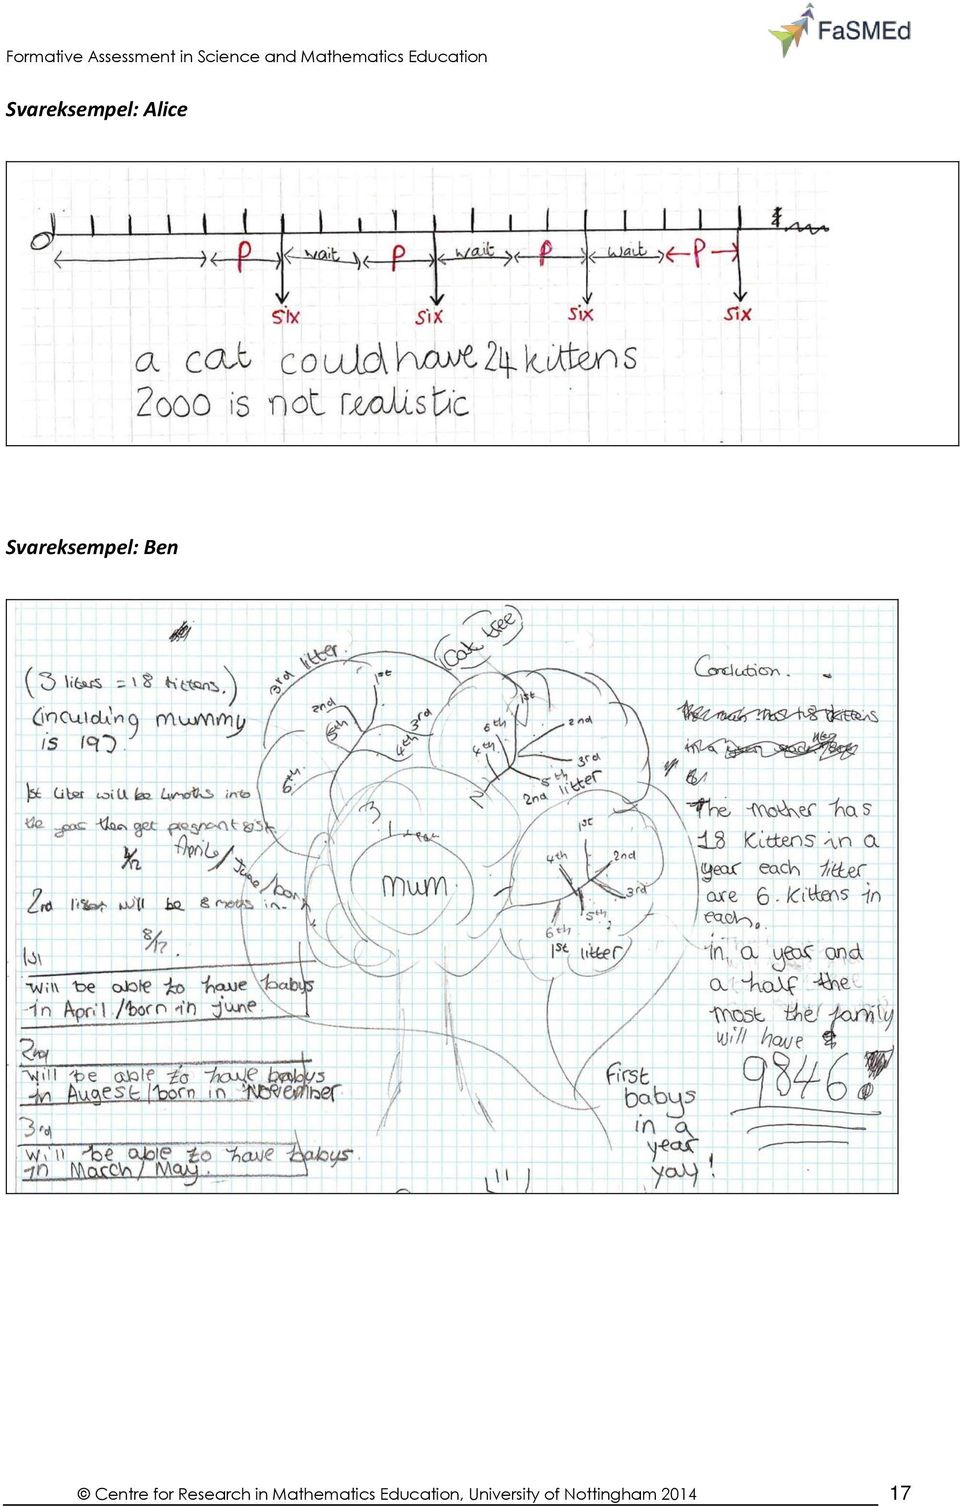 FaSMEd
Formative Assessment in Science and Mathematics Education
Svareksempel: Alice
P wait P wait P wait P
six six six six
a cat could have 24 kittens
2000 is not realistic
Svareksempel: Ben
Cat tree
3rd litter.
1st
2nd
5th
3rd
4th
6th.
1st
6th
2nd
4th
3rd
5th
2nd litter
1st
4th 2nd
3rd
5th
6th
1st litter
mum
(3 liters = 18 kittens.)
(inculding mummy
is 19).
1st liter will be 4moths into
the year then get pregnant
April/June/born
2nd will be 8 moths in.
8/12.
1st
will be able to have babys
in April./born in june.
2nd
will be able to have babys
in Augest/born in November
3rd
will be able to have babys.
in March/May.
Conclution.
The mother has
18 Kittens in a
year each litter
are 6. Kittens in
each.
in, a year and
a half the
most the family
will have
9846!
first
babys
in a
year
yay!
© Centre for Research in Mathematics Education, University of Nottingham 2014 17